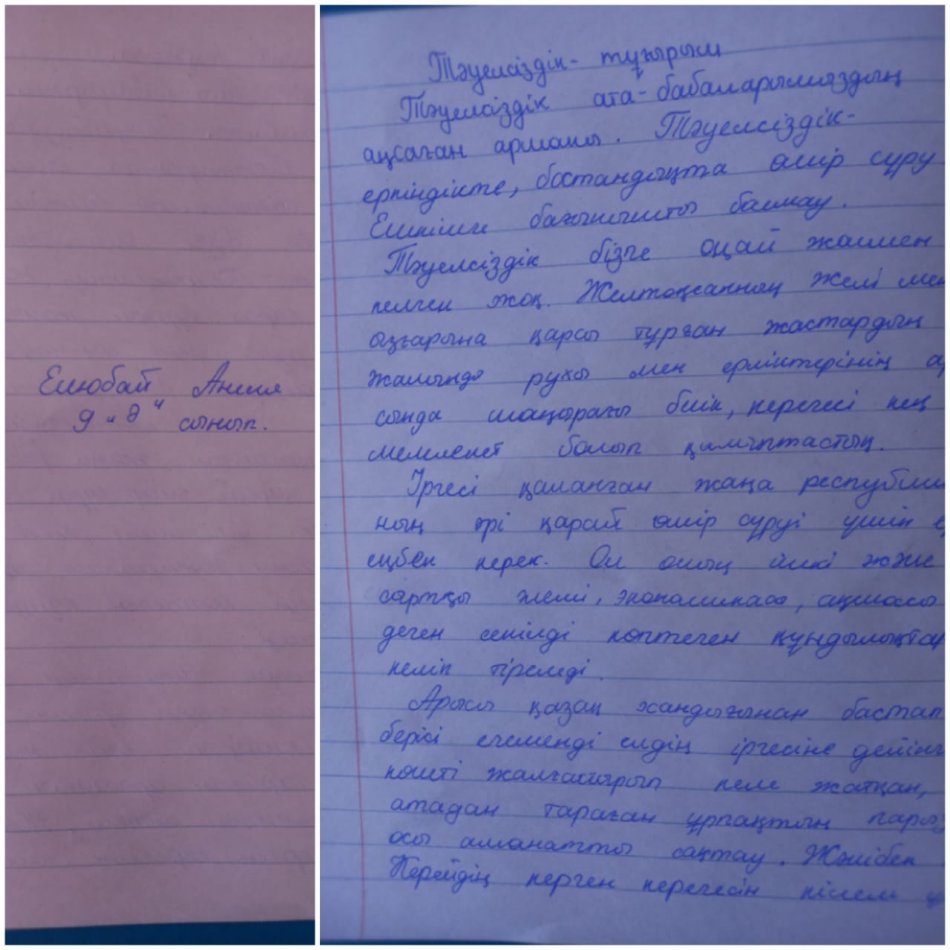 Елюбай Анеля
9 "д" сынып.
Тәуелсіздік- тұғырым
Тәуелсіздік ата-бабаларымыздың
аңсаған арманы. Тәуелсіздік-
еркіндікте, бостандықта өмір сүру
Ешкімге бағынышты болмау.
Тәуелсіздік бізге оңай жолмен
келген жоқ. Желтоқсанның желі мен
ызғарына қарсы тұрған жастардың
жалынды рухы мен ерліктерінің ар
сында шаңырағы биік, керегесі кең
мемлекет болып қалыптастық.
Іргесі қаланған жаңа республика
ның әрі қарай өмір сүруі үшін
еңбек керек. Ол оның ішкі және
сыртқы
экономикасы, ақшасы
деген секілді көптеген құндылықтар
келіп тіреледі.
Арысы қазақ хандығынан бастап
берісі егеменді елдің іргесіне дейінгі
көшті жалғастырып келе жатқан,
атадан тараған ұрпақтың парыз
осы аманатты сақтау. Жәнібек
Керейдің керген керегесін